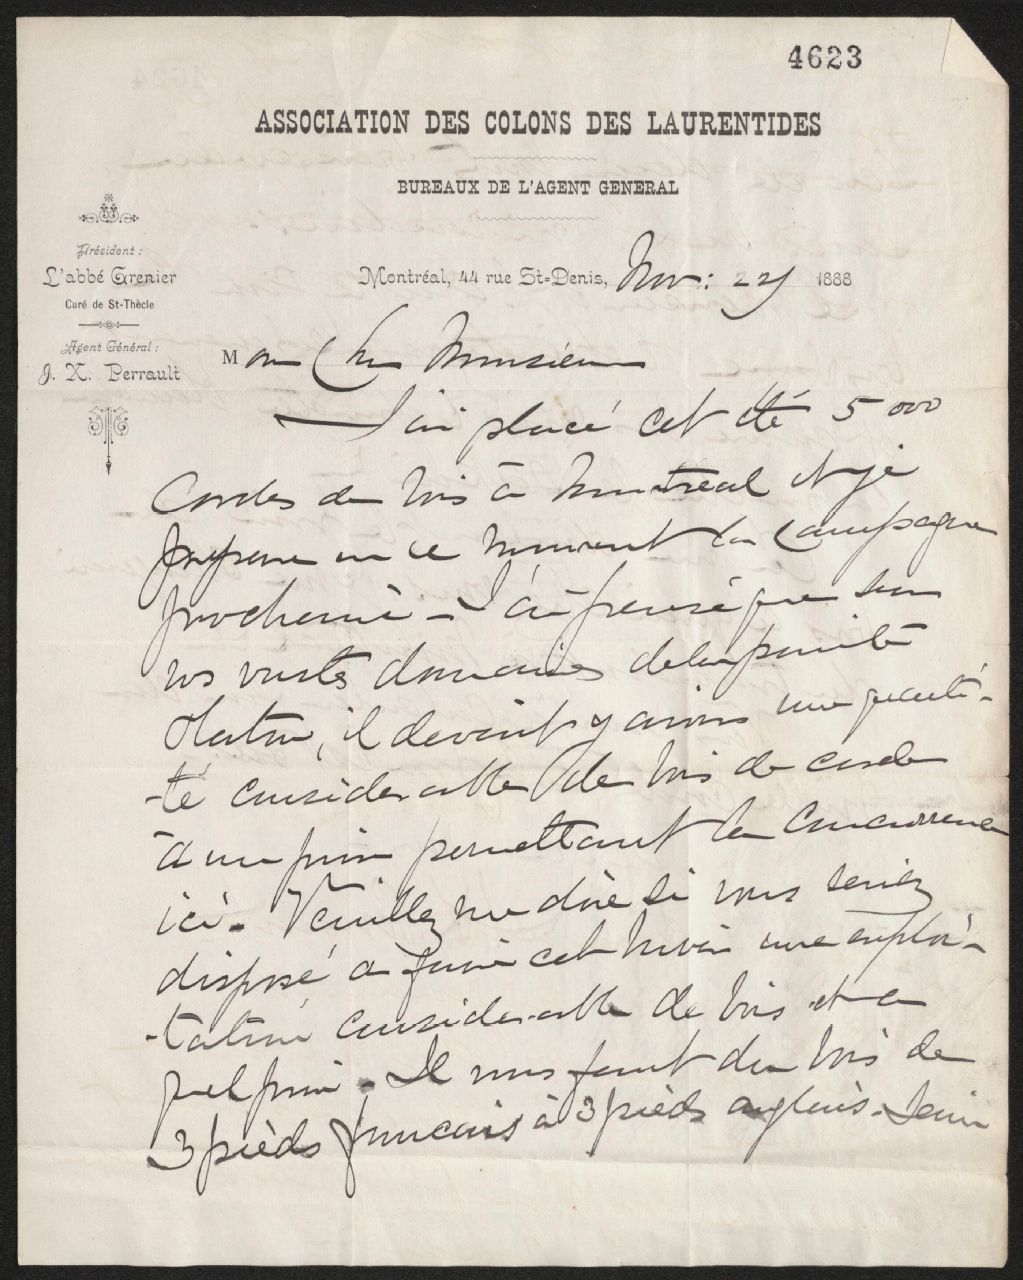 4623
ASSOCIATION DES COLONS DES LAURENTIDES
BUREAUX DE L'AGENT GENERAL
Président :
L'abbé Grenier
Curé de St-Thècle
Agent Général :
J. X. Perrault
Montréal, 44 rue St-Denis, Nov: 1888
Mon Cher Monsieur
J'ai placé cet été 5000
Cordes de bois à Montréal et je
prépare en ce moment la Campagne
prochaine - J'ai pensé que dans
vos vastes domaines de la petite
Nation, il devait y avoir une quanti-
-té considerable de bois de corde
à un prix permettant la Concurrence
ici - Veuillez me dire si vous seriez
disposé à faire cet hiver une exploi-
-tation considerable de bois et à
quel prix. Il nous faut du bois de
3 pieds français à 3 pieds anglais.